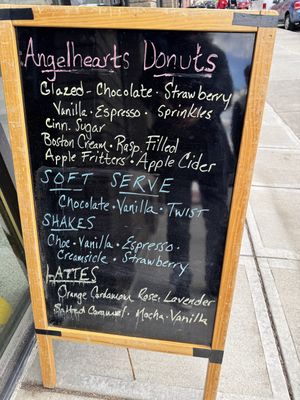 Angelhearts Donuts
Glazed - Chocolate · Strawberry
Vanilla · Espresso · Sprinkles
Cinn. Sugar
Boston Cream · Rasp. Filled
Apple Fritters · Apple Cider
SOFT SERVE
Chocolate · Vanilla · Twist
SHAKES
Choc · Vanilla · Espresso
Creamsicle · Strawberry
LATTES
Orange Cardamom Rose, Lavender
Salted Caramel · Mocha · Vanilla